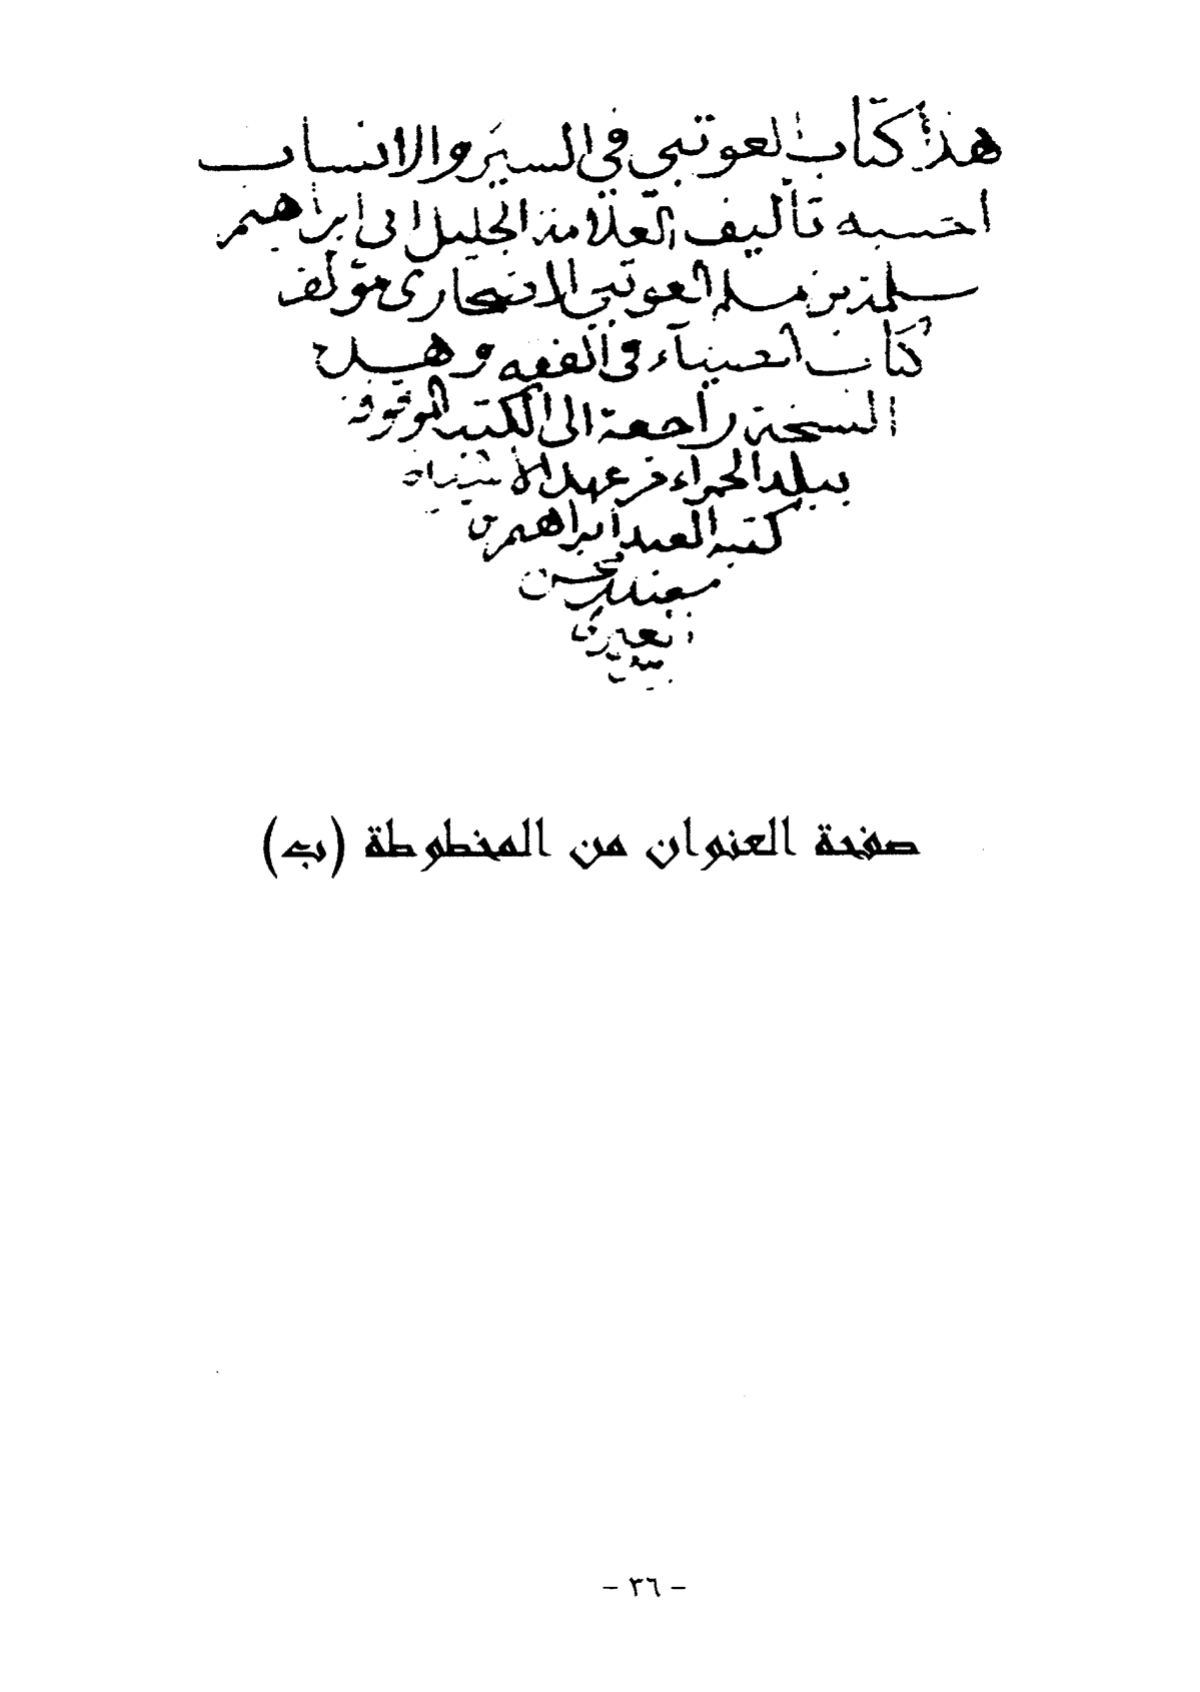 هذا كتاب العوتبي في السير والانساب
احسبه تأليف العلامة الجليل ابى ابراهيم
سلمة بن مسلم العوتبي الانصحارى مؤلف
كتاب الضياء في الفقه وهذه
النسخة راجعة الى الكتب الموقوفة
ببلد الحمراء من عهد الاشياخ
كتبه العبد ابراهيم بن
سعيد بن محسن
العبري
بيده
صفحة العنوان من المخطوطة (ب)
- ٣٦ -